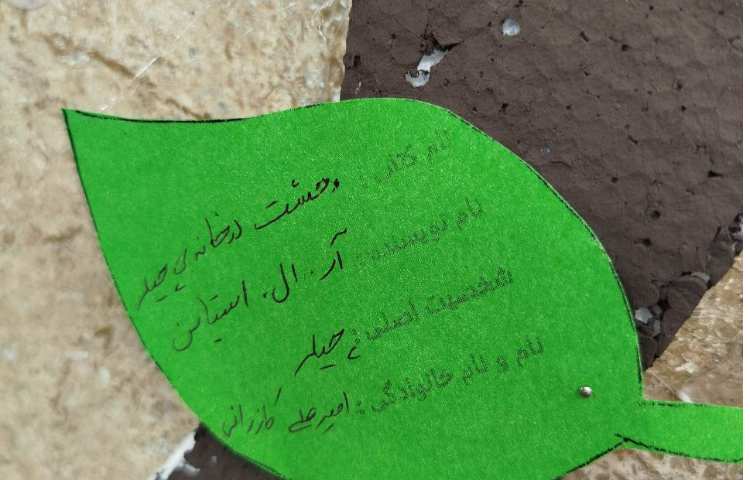 نام کتاب: وحشت در خانه پی جیلر
نام نویسنده: آر. ال. استاین
شخصیت اصلی: پی جیلر
نام و نام خانوادگی: امیرعلی کازرانی